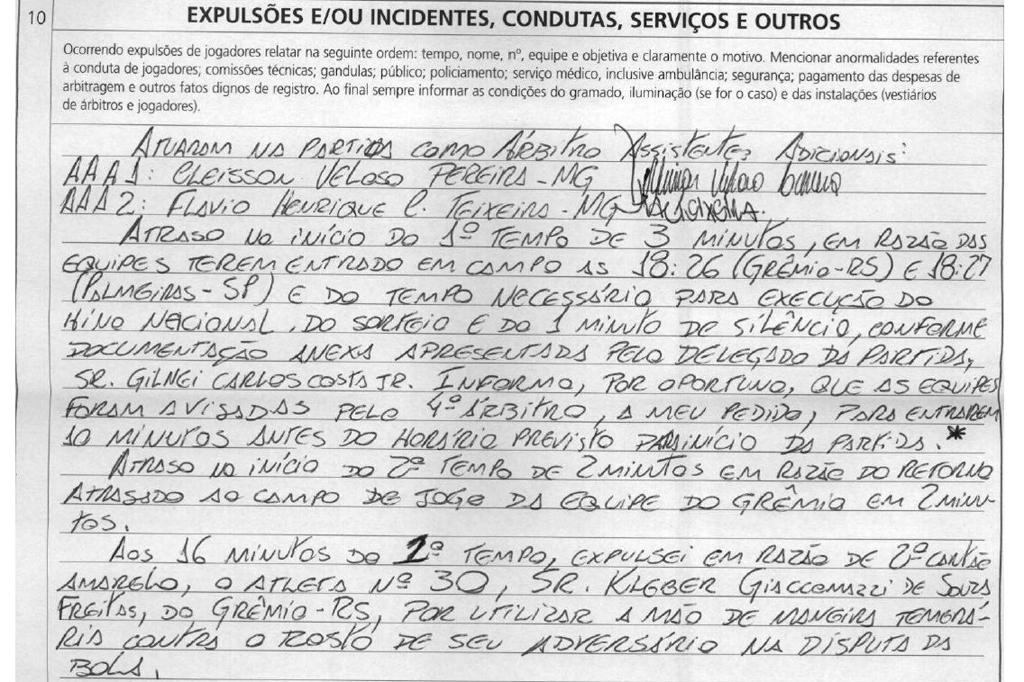 10
EXPULSÕES E/OU INCIDENTES, CONDUTAS, SERVIÇOS E OUTROS
Ocorrendo expulsões de jogadores relatar na seguinte ordem: tempo, nome, nº, equipe e objetiva e claramente o motivo. Mencionar anormalidades referentes
à conduta de jogadores; comissões técnicas; gandulas; público; policiamento; serviço médico, inclusive ambulância; segurança; pagamento das despesas de
arbitragem e outros fatos dignos de registro. Ao final sempre informar as condições do gramado, iluminação (se for o caso) e das instalações (vestiários
de árbitros e jogadores).
ATUARAM NA PARTIDA COMO ÁRBITRO ASSISTENTES ADICIONAIS:
AAA1: CLEISSON VELOSO PEREIRA - MG
AAA2: FLAVIO HENRIQUE C. TEIXEIRA - MG
ATRASO NO INÍCIO DO 1º TEMPO DE 3 MINUTOS, EM RAZÃO DAS
EQUIPES TEREM ENTRADO EM CAMPO AS 18:26 (GRÊMIO-RS) E 18:27
(PALMEIRAS - SP) E DO TEMPO NECESSÁRIO PARA EXECUÇÃO DO
HINO NACIONAL, DO SORTEIO E DO 1 MINUTO DE SILÊNCIO, CONFORME
DOCUMENTAÇÃO ANEXA APRESENTADA PELO DELEGADO DA PARTIDA,
SR. GILNEI CARLOS COSTA JR. INFORMO, POR OPORTUNO, QUE AS EQUIPES
FORAM AVISADAS PELO 4º ÁRBITRO, A MEU PEDIDO, PARA ENTRAREM
10 MINUTOS ANTES DO HORÁRIO PREVISTO PARA INÍCIO DA PARTIDA.*
ATRASO NO INÍCIO DO 2º TEMPO DE 2 MINUTOS EM RAZÃO DO RETORNO
ATRASADO AO CAMPO DE JOGO DA EQUIPE DO GRÊMIO EM 2 MINU-
TOS.
AOS 16 MINUTOS DO º TEMPO, EXPULSEI EM RAZÃO DE 2º CARTÃO
AMARELO, O ATLETA Nº 30, SR. KLEBER GIACOMAZZI DE SOUZA
FREITAS, DO GRÊMIO-RS, POR UTILIZAR A MÃO DE MANEIRA TEMERÁ-
RIA CONTRA O ROSTO DE SEU ADVERSÁRIO NA DISPUTA DA
BOLA.